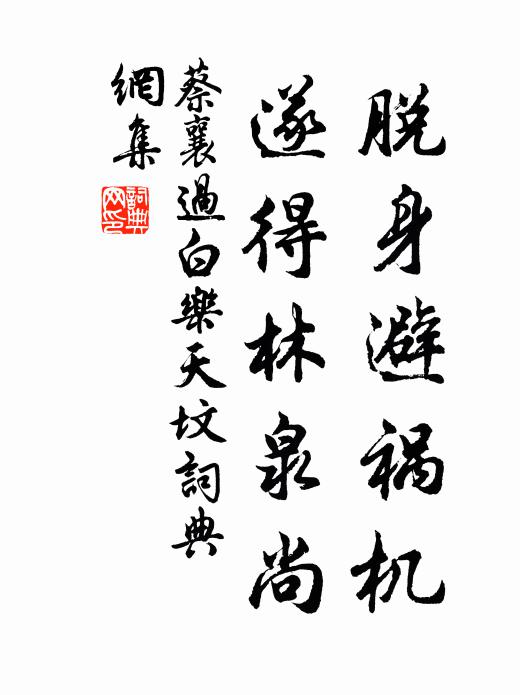 脱身避祸机
遂得林泉尚
蔡襄過白樂天坟詞典
網集
詞典网印